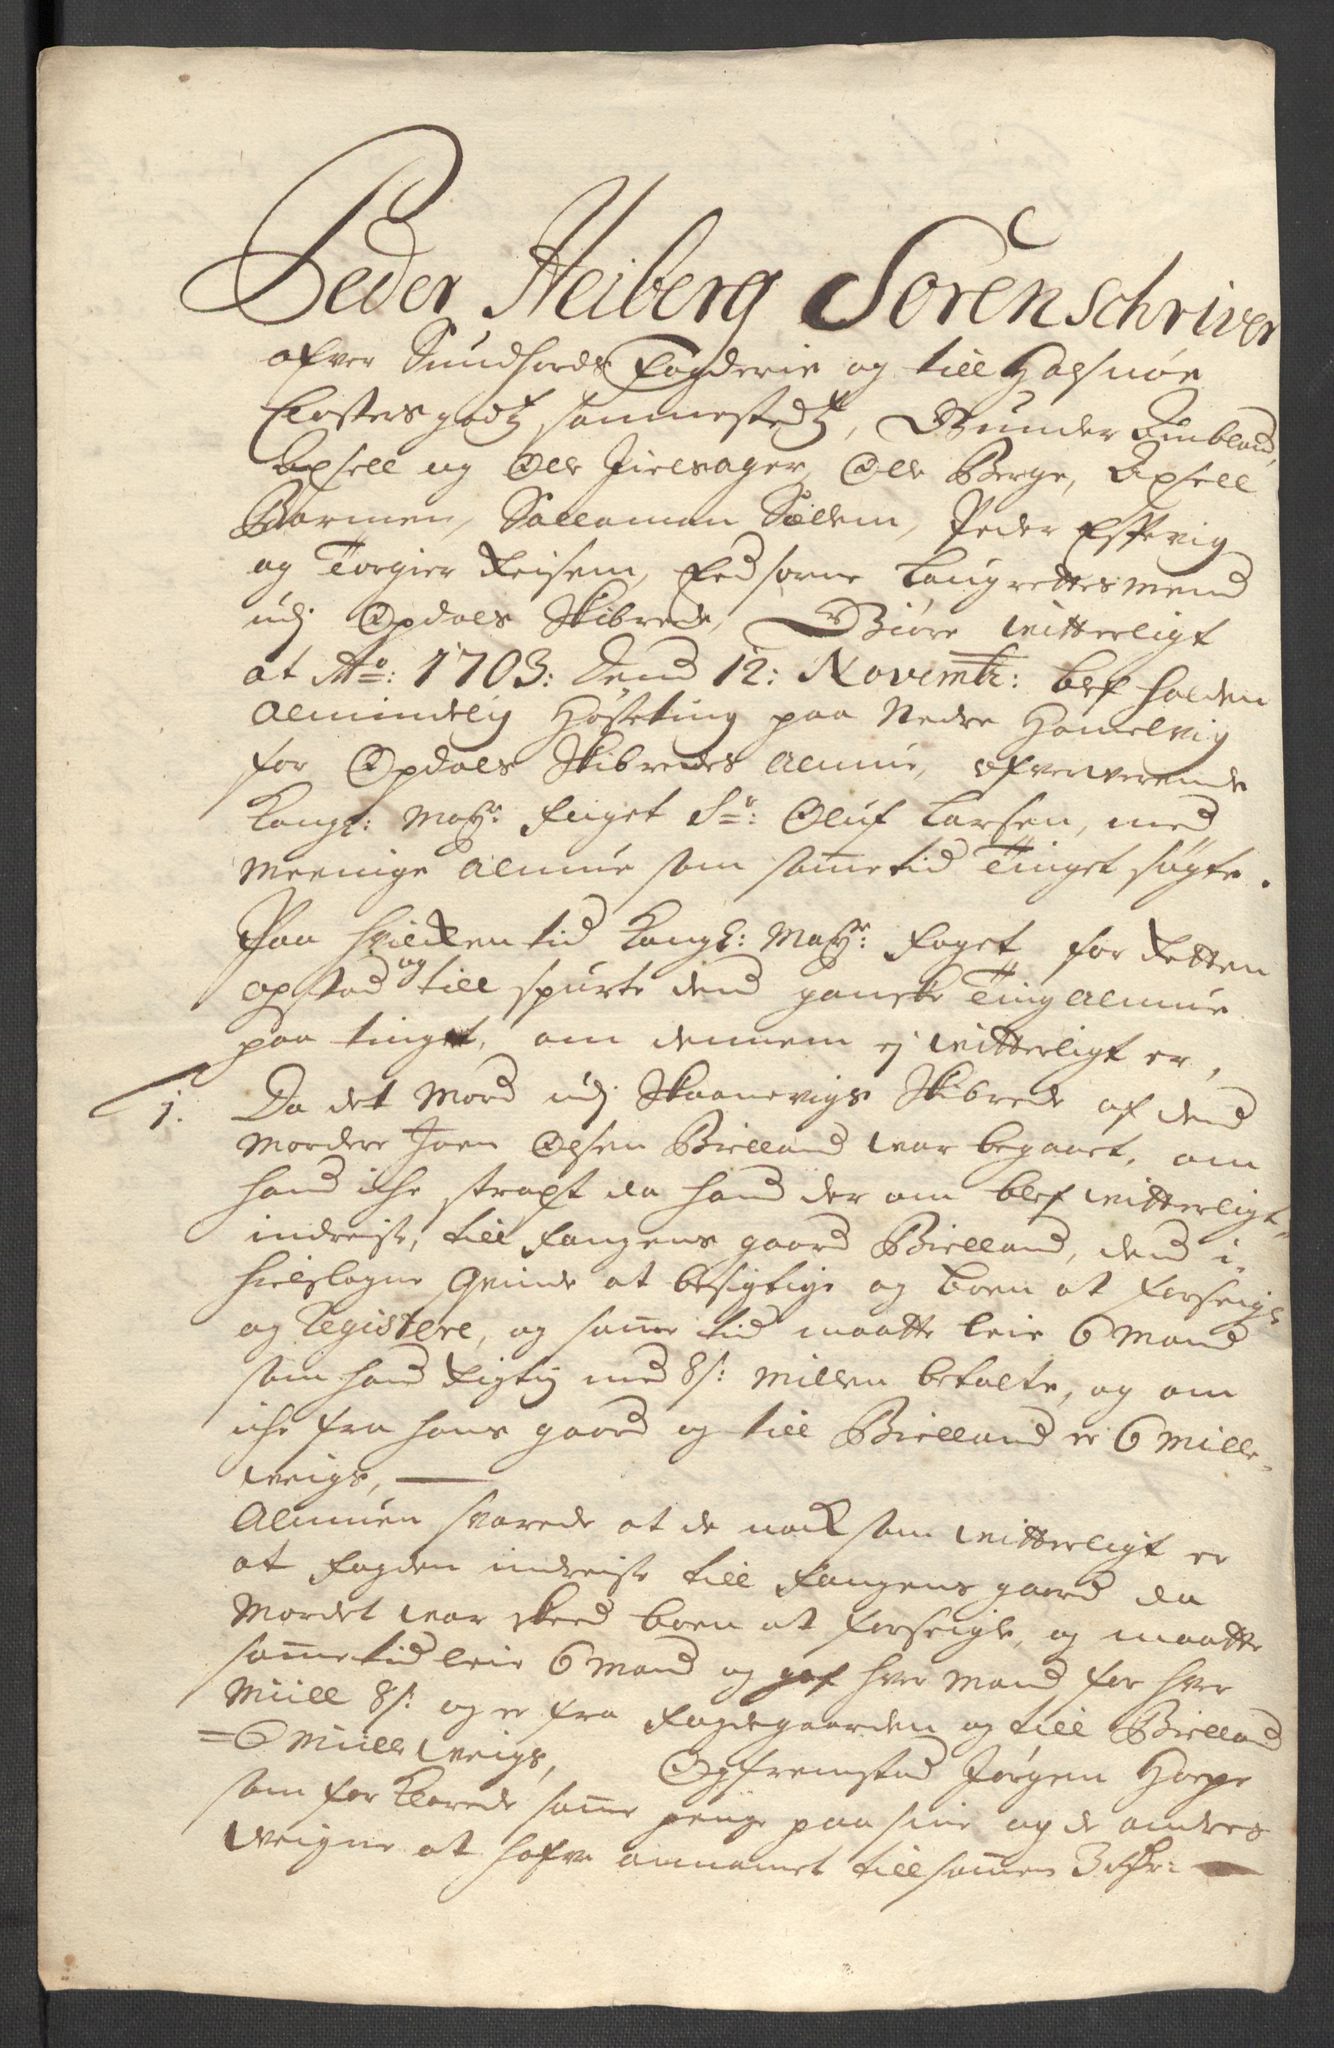 Peder Heiberg Sorenschriver
ofver Sundhords Fogderie og till Halsnøe
Closters godtz sammestedtz, Gunder Lunbland,
Axsell og Olle Jielsager, Olle Berge, Axsell
Barmen, Sallamon Sældem, Peder Espevig
og Torgier Reisem, Eedsorne Laugrettesmend
udj Opdals Skibrede, Giøre witterligt
at Ao: 1703: Dend 12: Novembr: blef holden
Almindelig Høsteting paa Nedre Hamelvig
for Opdals Skibredes Almue, ofververende
Kongl: Mayts: Foget Sr: Oluf Larsen, med
Meenige Almue som samme tid Tinget søgte.
Paa hvilcken tid Kongl: Mayts: Foget for Retten
opstod og till spurte dend gandske Ting Almue
paa tinget, om dennem ej witterligt er,
1. Da det Mord udj Skaanevigs Skibrede af dend
Mordere Joen Olsen Bielland war begaaet, om
hand iche strax da hand der om blef witterligt,
indreiste, till Fangens gaard Bielland, dend i-
hielslagne Qvinde at besigtige og boen at forseigle
og Registere, og samme tid maatte leie 6 Mand
som hand Rigtig med 8 s: Millen betalte, og om
iche fra hans gaard og till Bielland er 6 Mille
weigs,
Almuen svarede at de nock som witterligt er
at Fogden indreiste till Fangens gaard da
Mordet war skeed boen at forseigle, og maatte
samme tid leie 6 Mand og gaf hver Mand for hver
Miill 8 s: og er fra Fogdegaarden og till Bielland
6 Mille weigs, Og fremstod Jørgen Hope
som for klarede samme penge paa sine og de andres
weigne at hafve annamet tillsammen 3 Rdr: